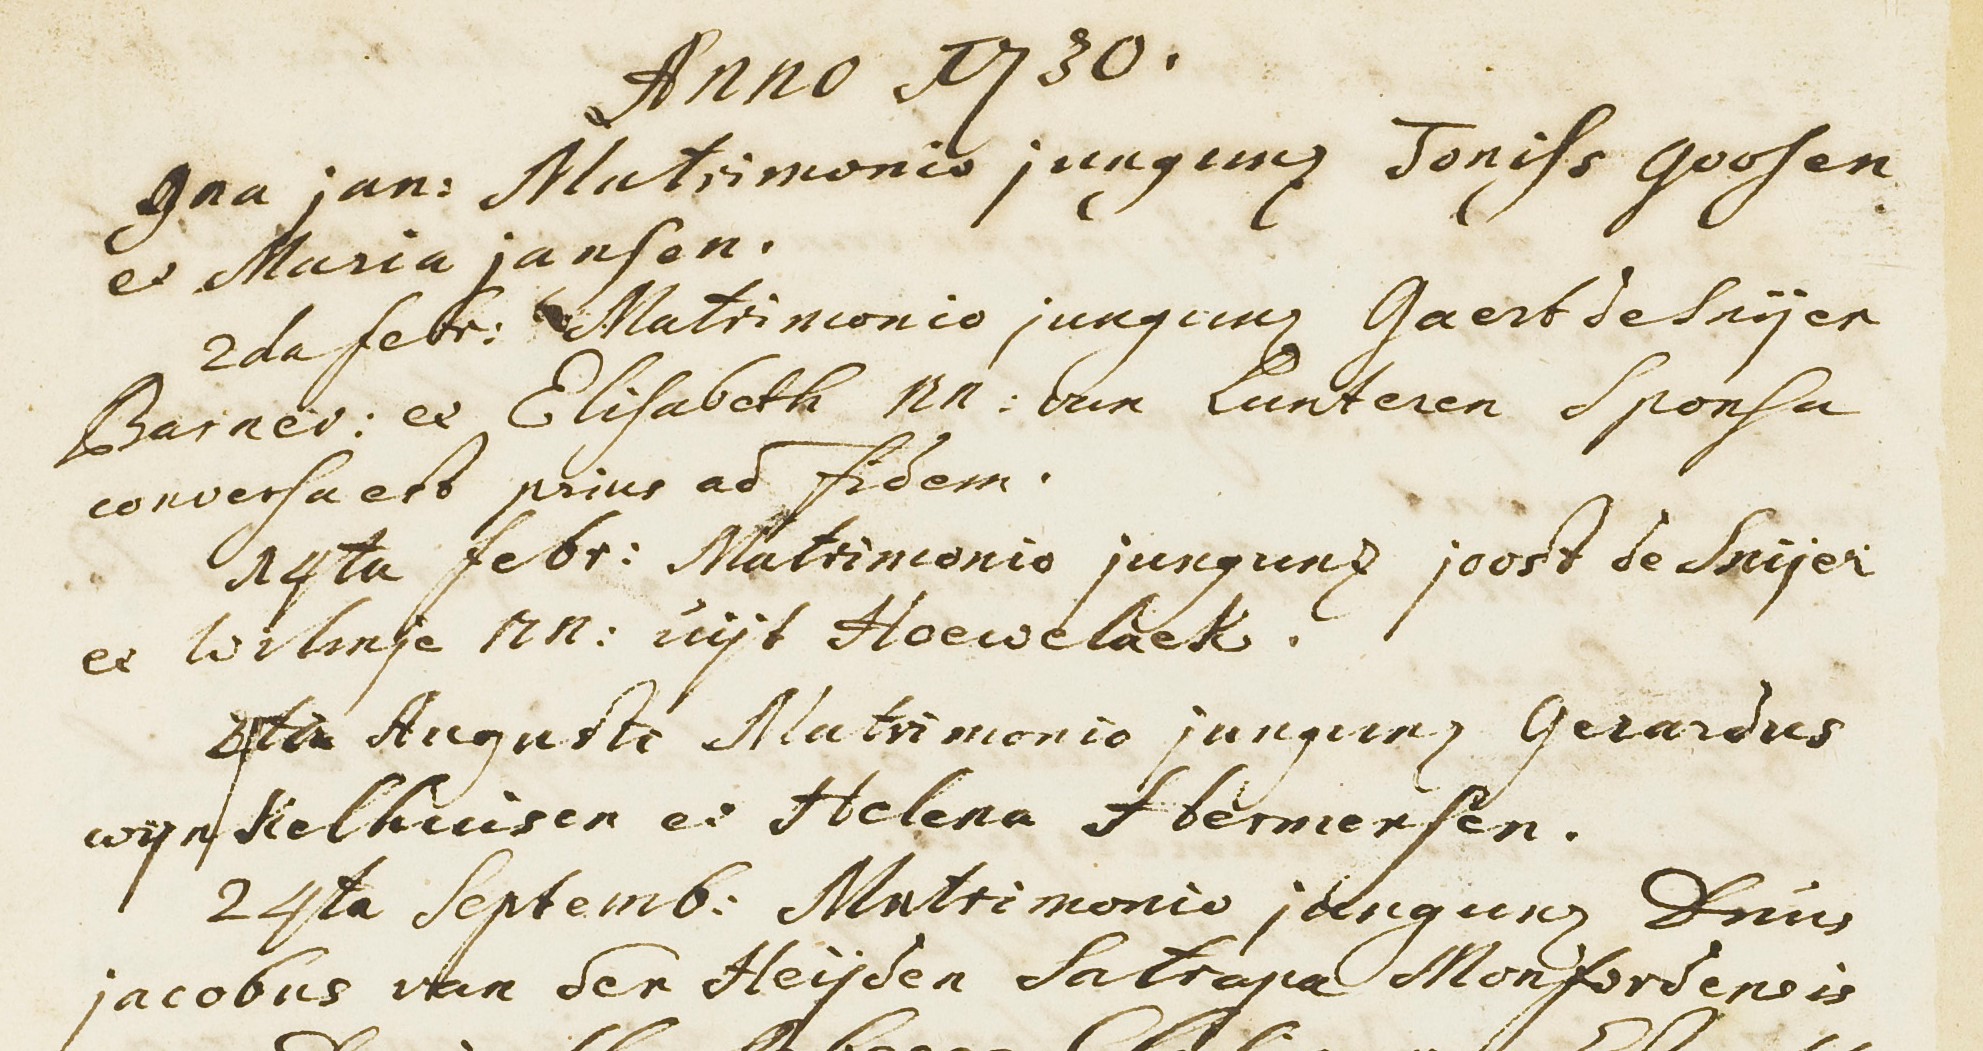 Anno 1730.
9na jan: Matrimonio jungunz Toniss Goosen
et Maria jansen.
2da febr: Matrimonio jungunz Gaert de Snijer
Barnev: et Elisabeth nn: van Lunteren Sponsa
conversa est prius ad fidem.
14ta febr: Matrimonio jungunz joost de Snijer
et nn: uijt Hoewelaek.
Augusti Matrimonio jungunz Gerardus
wijnkelhuisen et Helena
24ta Septemb: Matrimonio jungunz Dnus
jacobus van der Heijden Satrapa Monfordensis